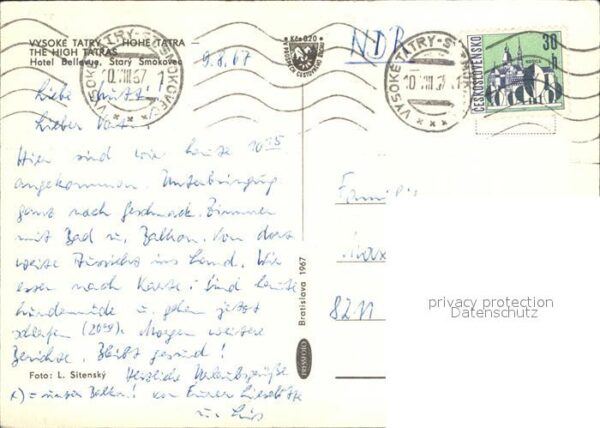 VYSOKÉ TATRY — HOHE TATRA —
THE HIGH TATRAS
Hotel Bellevue, Starý Smokovec
Kčs 0,20
NDR
9.8.67
VYSOKÉ TATRY-S SMOKOVEC
10.VIII.67
1
VYSOKÉ TATRY-S
10.VIII.67
ČESKOSLOVENSKO
30
h
Liebe Mutti!
Lieber Vati!
Hier sind wir heute 10 25
angekommen. Unterbringung
ganz nach Geschmack. Zimmer
mit Bad u. Balkon. Von dort
weite Aussicht ins Land. Wir
essen nach Karte. Sind heute
hundemüde u. gehen jetzt
schlafen (20 49). Morgen weitere
Berichte. Bleibt gesund!
Herzliche Urlaubsgrüße
x) = unser Balkon! von Eurer Lieselotte
u.
Fami
Max
8211
Bratislava 1967
PRESSFOTO
Foto: L. Sitenský
privacy protection
Datenschutz